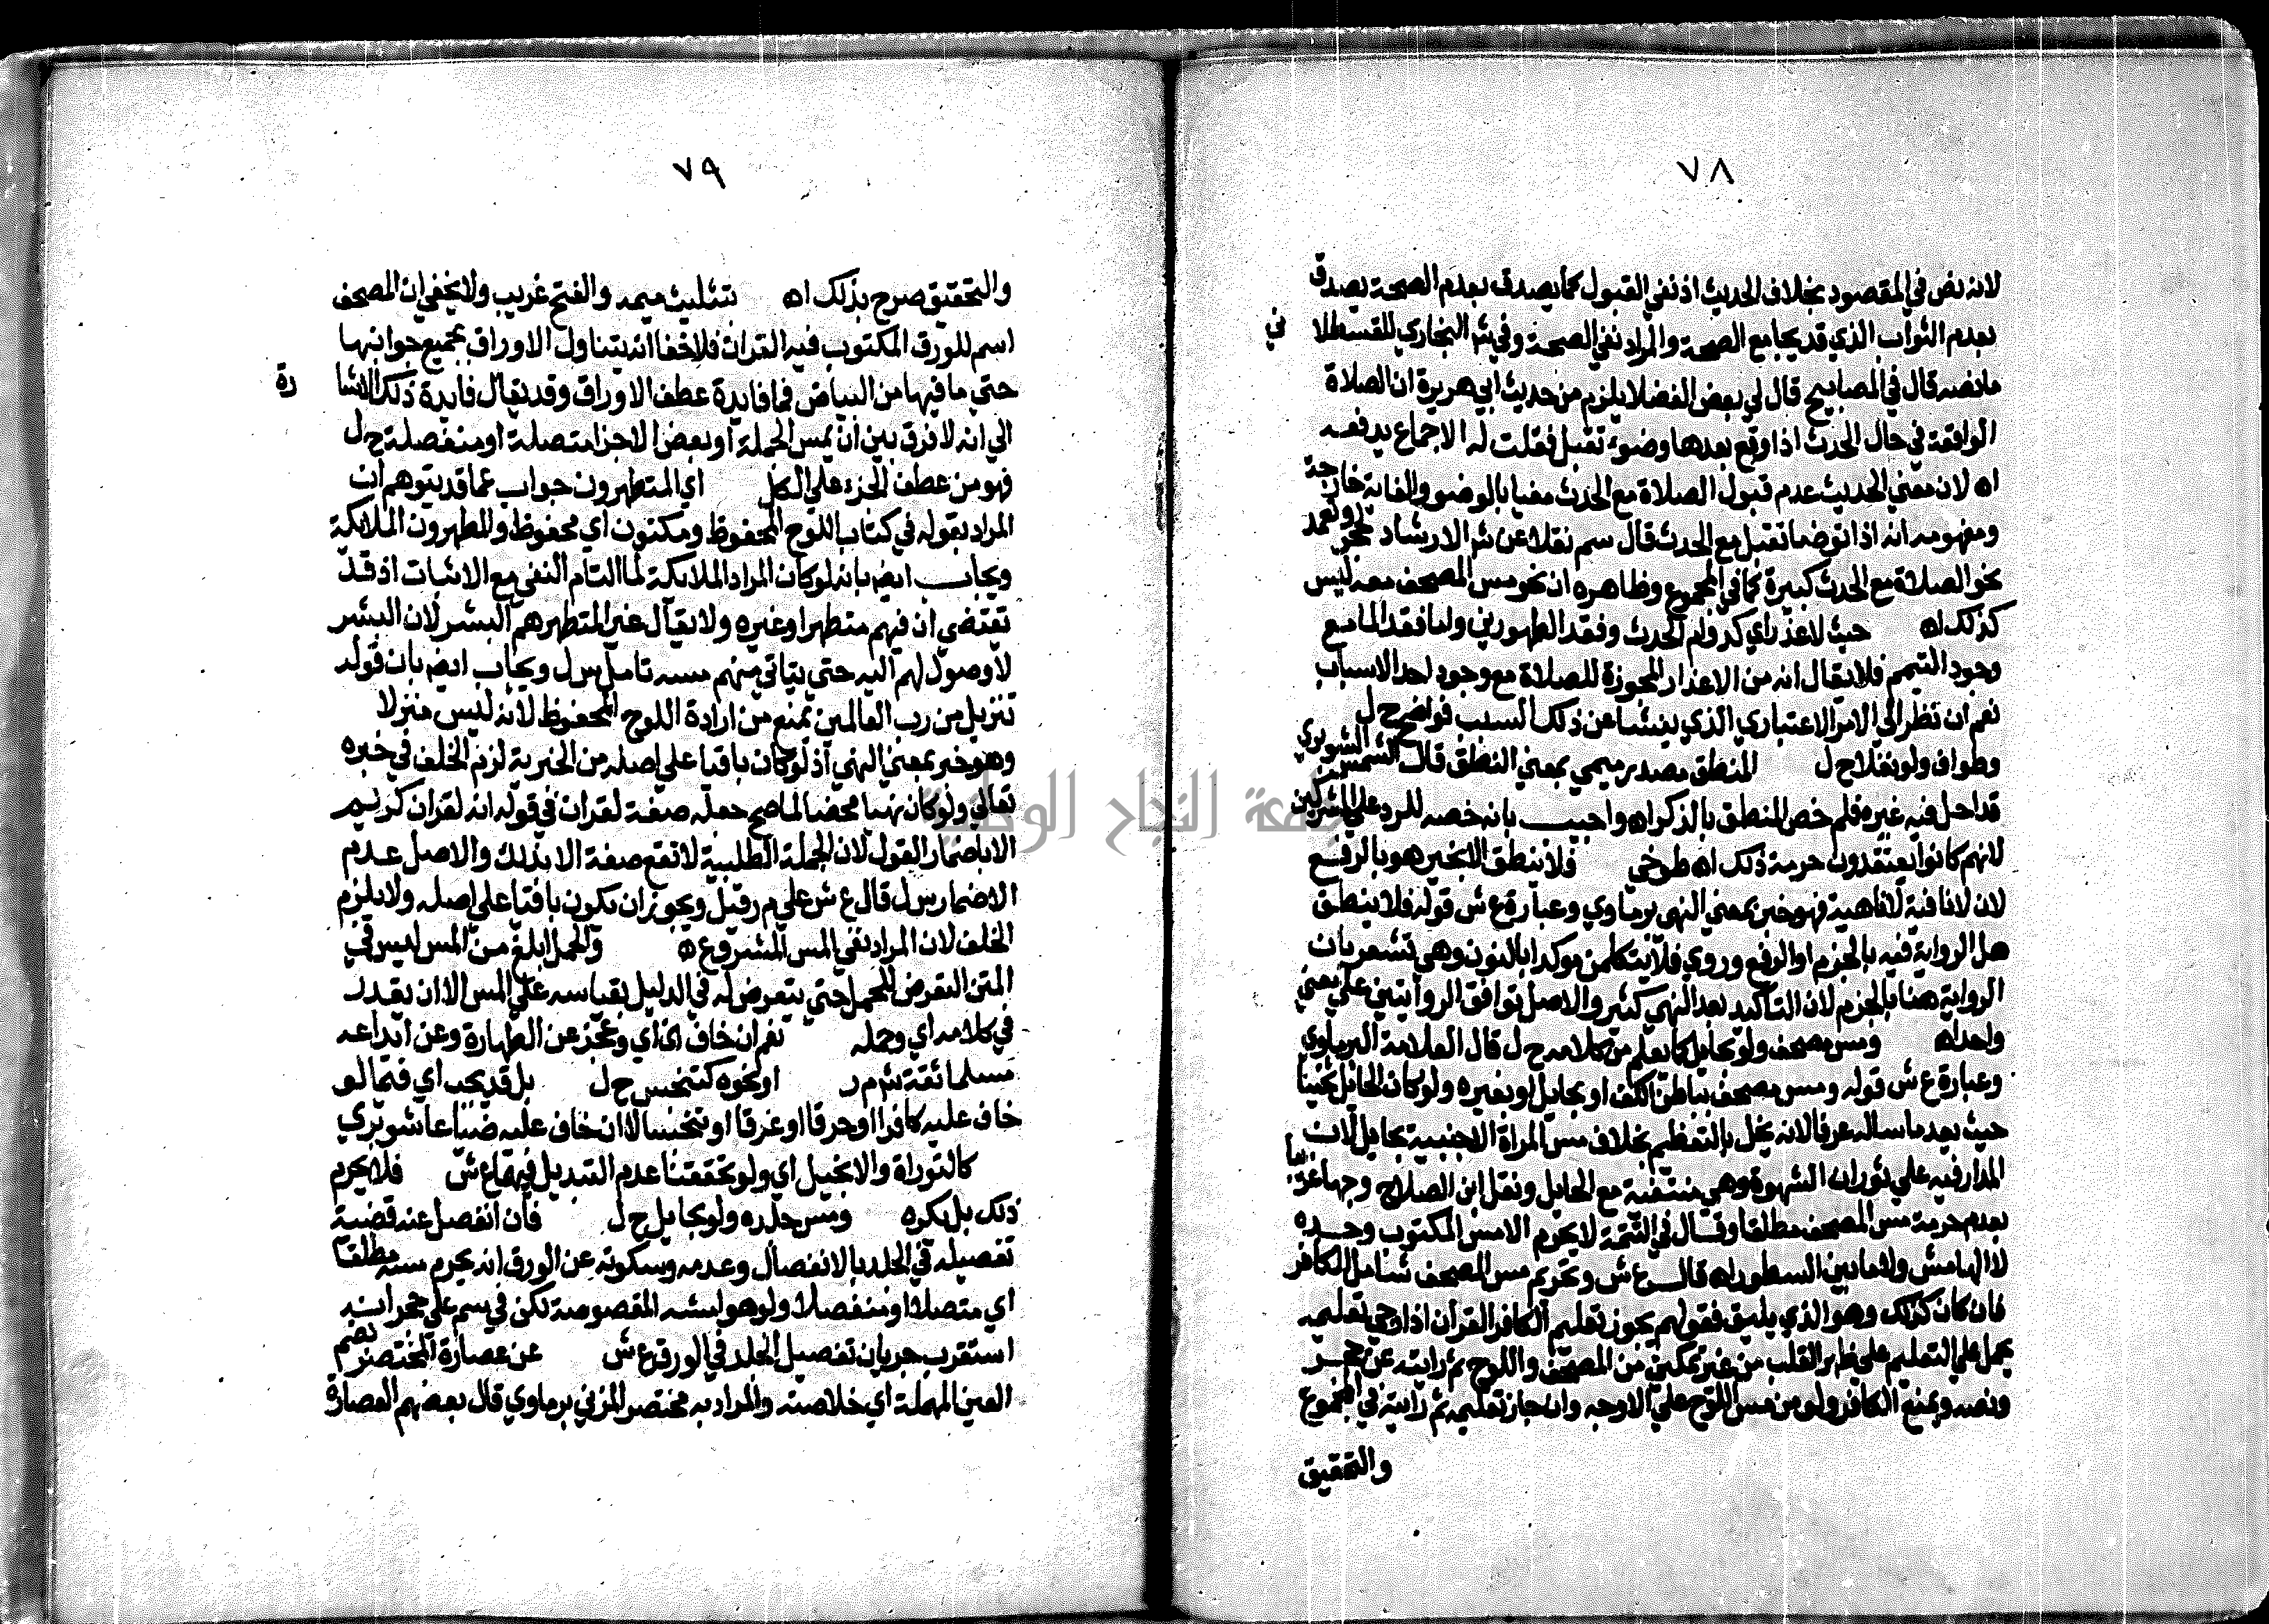 ٧٨
لانه نص في المقصود بخلاف الحديث اذ نفي القبول كما يصدق بعدم الصحة يصدق
بعدم الثواب الذي قد يجامع الصحة والمراد نفي الصحة وفي شر البخاري للقسطلاني
ما نصه قال في المصابيح قال لي بعض الفضلا يلزم من حديث ابي هريرة ان الصلاة
الواقعة في حال الحدث اذا وقع بعدها وضوء تقبل فقلت له الاجماع يدفعه
اه لان معني الحديث عدم قبول الصلاة مع الحدث مغيا بالوضو والغاية خارجة
ومفهومه انه اذا توضا تقبل مع الحدث قال سم نقلا عن شر الارشاد لحجر وتعمد
نحو الصلاة مع الحدث كبيرة كما في المجموع وظاهره ان نحو مس المصحف معه ليس
كذلك اه حيث لا عذر اي كدوام الحدث وفقد الطهورين واما فقد الما مع
وجود التيمم فلا يقال انه من الاعذار المجوزة للصلاة مع وجود احد الاسباب
نعم ان نظر الي الامر الاعتباري الذي ينشا عن ذلك السبب فواضح ح ل
وطواف ولو نفلا ح ل المنطق مصدر ميمي بمعني النطق قال الشمس الشوبري
قد احل فيه غيره فلم خص المنطق بالذكر اه واجيب بانه خصه للرد علي المشركين
لانهم كانوا يعتقدون حرمة ذلك اه طوخي فلا ينطق الا بخير هو بالرفع
لان لا نافية لا ناهية فهو خبر بمعني النهي برماوي وعبارة ع ش قوله فلا ينطق
هل الرواية فيه بالجزم او الرفع وروي فلا يتكلمن موكدا بالنون وهي تشعر بان
الرواية هنا بالجزم لان التاكيد بعد النهي كثير والاصل توافق الروايتين علي معني
واحد اه ومس مصحف ولو بحايل كما يعلم من كلامه ح ل قال العلامة البرماوي
وعبارة ع ش قوله ومس مصحف بباطن الكف او بحايل او بغيره ولو كان الحايل ثخينا
حيث يعد ماسا له عرفا لانه يخل بالتعظيم بخلاف مس المراة الاجنبية بحايل لان
المدار فيه علي ثوران الشهوة وهي منتفية مع الحايل ونقل ابن الصلاح وجها غريبا
بعدم حرمة مس المصحف مطلقا وقال في التتمة لا يحرم الا مس المكتوب وحده
لا الهامش ولا ما بين السطور اه قال ع ش وتحريم مس المصحف شامل للكافر
فان كان كذلك وهو الذي يليق فقولهم يجوز تعليم الكافر القران اذا رجي تعليمه
يحمل علي التعليم علي ظهر القلب من غير تمكين من المصحف واللوح ثم رايته عن حجر
ونصه ويمنع الكافر ولو من مس اللوح علي الاوجه وان جاز تعليمه ثم رايته في المجموع
والتحقيق
٧٩
والتحقيق صرح بذلك اه بتثليث ميمه والفتح غريب ولا يخفي ان المصحف
اسم للورق المكتوب فيه القران فلا خفا انه يتناول الاوراق بجميع جوانبها
حتي ما فيها من البياض فما فايدة عطف الاوراق وقد يقال فايدة ذلك الاشارة
الي انه لا فرق بين ان يمس الجملة او بعض الاجزا متصلة او منفصلة ح ل
فهو من عطف الجزء علي الكل اي المتطهرون جواب عما قد يتوهم ان
المراد بقوله في كتاب اللوح المحفوظ ومكنون اي محفوظ والمطهرون الملايكة
ويجاب ايض بانه لو كان المراد الملايكة لما التام النفي مع الاثبات اذ قد
تقتضي ان فيهم متطهرا وغيره ولا يقال غير المتطهر هم البشر لان البشر
لا وصول لهم اليه حتي يتاتي منهم مسه تامل س ل ويجاب ايض بان قوله
تنزيل من رب العالمين يمنع من ارادة اللوح المحفوظ لانه ليس منزلا
وهو خبر بمعني النهي اذ لو كان باقيا علي اصله من الخبرية لزم الخلف في خبره
تعالي ولو كان نهيا محضا لما صح جعله صفة لقران في قوله انه لقران كريم
الا باضمار القول لان الجملة الطلبية لا تقع صفة الا بذلك والاصل عدم
الاضمار س ل قال ع ش علي م ر قيل ويجوز ان يكون باقيا علي اصله ولا يلزم
الخلف لان المراد نفي المس المشروع ه والحمل ابلغ من المس ليس في
المتن التعرض للحمل حتي يتعرض له في الدليل بقياسه علي المس الا ان يقدر
في كلامه اي وحمله نعم ان خاف الخ اي وعجز عن الطهارة وعن ايداعه
مسلما ثقة ش م ر او نحوه كتنجس ح ل بل قد يجب اي فيما لو
خاف عليه كافرا او حرقا او غرقا او تنجسا لا ان خاف عليه ضياعا شوبري
كالتوراة والانجيل اي ولو تحققنا عدم التبديل فيهما ع ش فلا يحرم
ذلك بل يكره ومس جلده ولو بحايل ح ل فان انفصل عنه قضية
تفصيله في الجلد بالانفصال وعدمه وسكوته عن الورق انه يحرم مسه مطلقا
اي متصلا او منفصلا ولو هوامشه المقصوصة لكن في سم علي حجر انه
استقرب جريان تفصيل الجلد في الورق ع ش عن عصارة المختصر بضم
العين المهملة اي خلاصته والمراد به مختصر المزني برماوي قال بعضهم العصارة